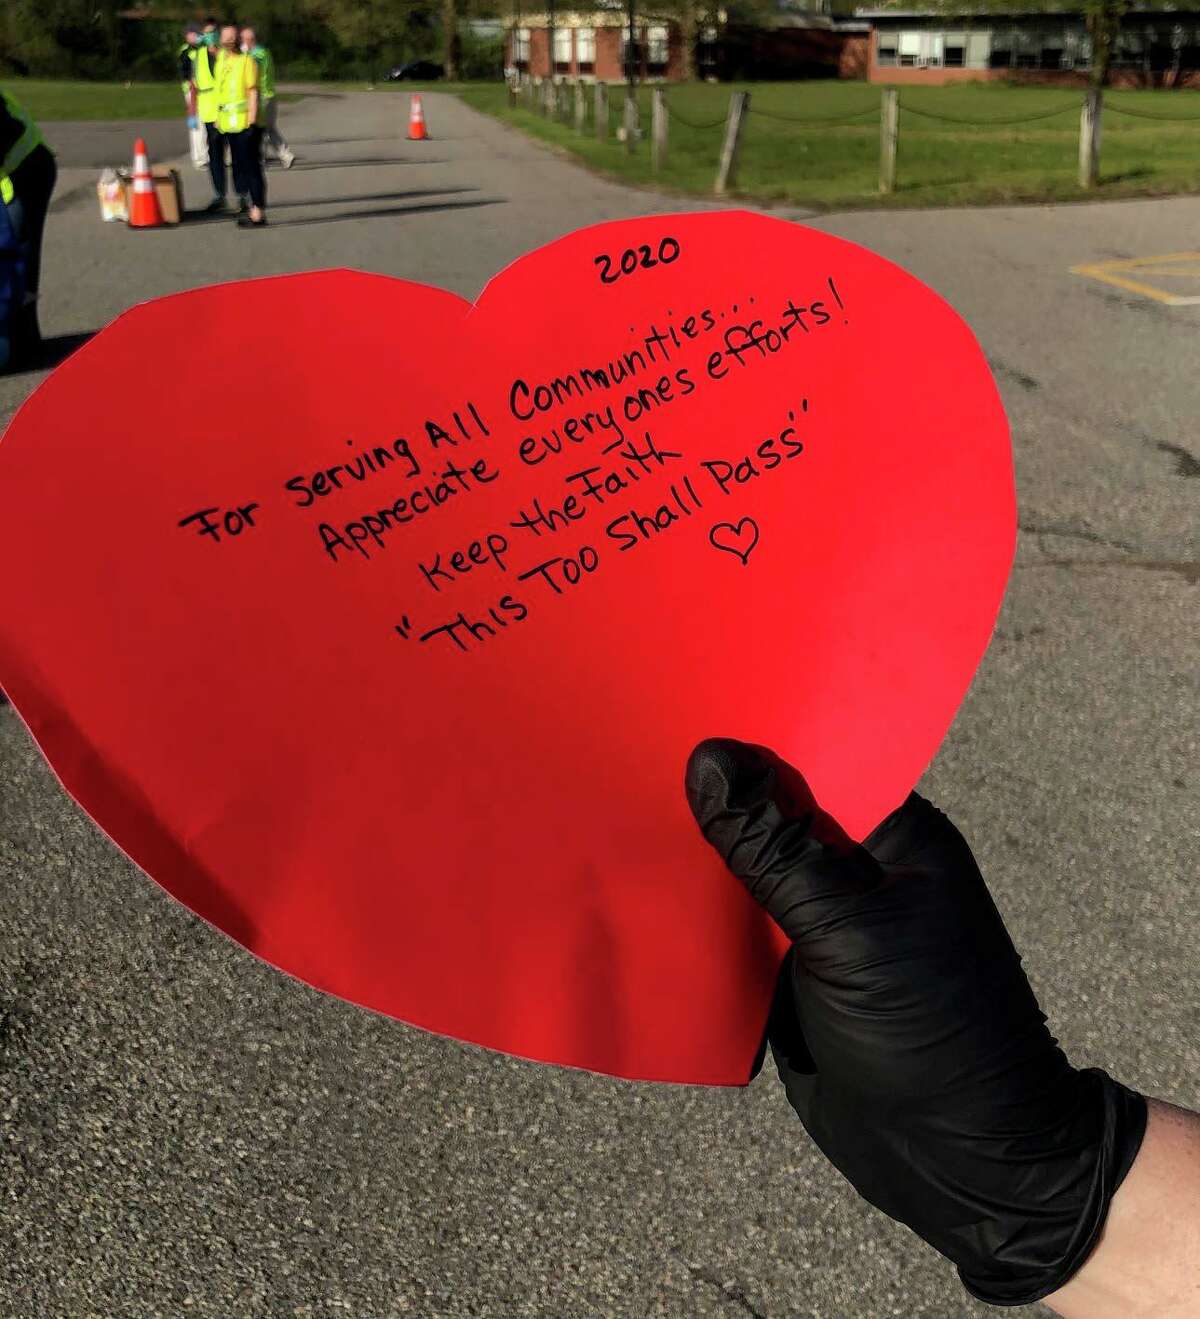 2020
For serving All Communities...
Appreciate everyones efforts!
Keep the Faith
"This Too Shall Pass"